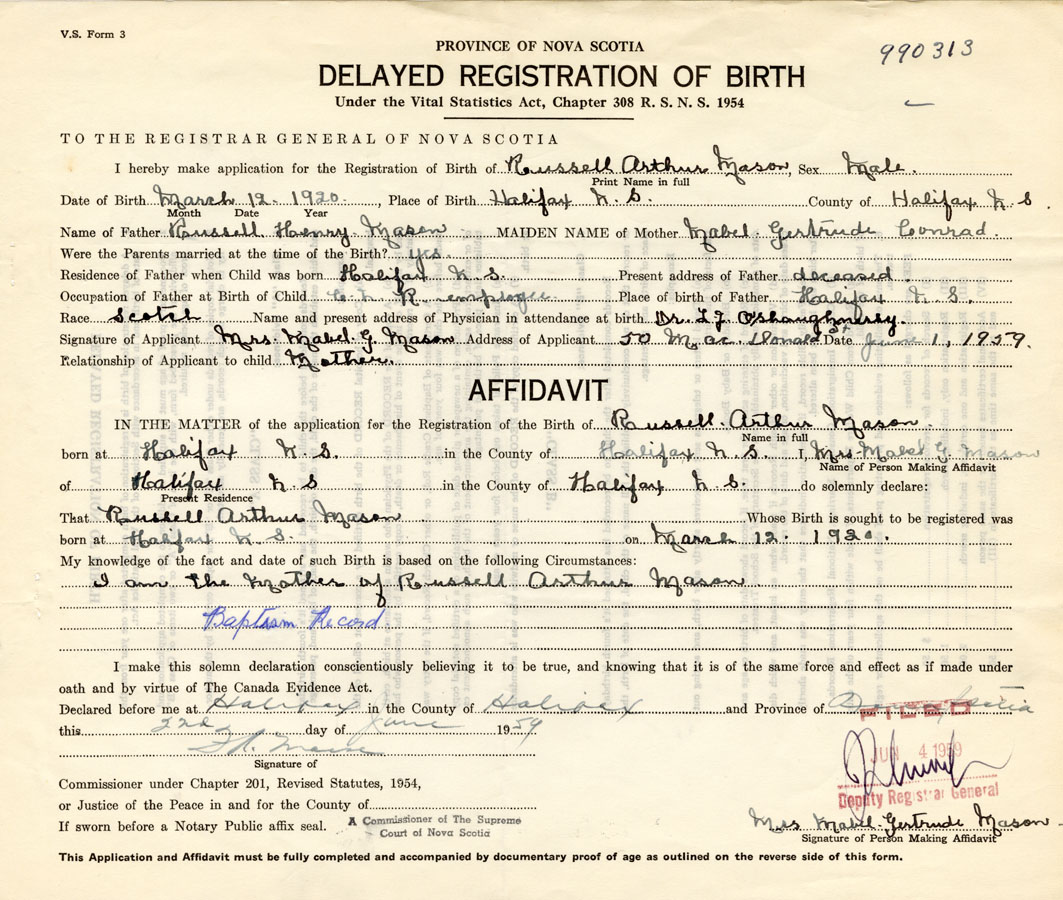 V.S. Form 3
990313
PROVINCE OF NOVA SCOTIA
DELAYED REGISTRATION OF BIRTH
Under the Vital Statistics Act, Chapter 308 R. S. N. S. 1954
TO THE REGISTRAR GENERAL OF NOVA SCOTIA
I hereby make application for the Registration of Birth of Russell Arthur Mason, Sex Male.
Print Name in full
Date of Birth March 12 1920, Place of Birth Halifax N. S. County of Halifax N. S
Month Date Year
Name of Father Russell Henry Mason MAIDEN NAME of Mother Mabel Gertrude Conrad.
Were the Parents married at the time of the Birth? yes.
Residence of Father when Child was born Halifax N S. Present address of Father deceased
Occupation of Father at Birth of Child C. N R employee Place of birth of Father Halifax N S.
Race Scotch Name and present address of Physician in attendance at birth Dr. O'Shaughnessy.
Signature of Applicant Mrs. Mabel G. Mason Address of Applicant 50 Mac Donald St Date June 1, 1959.
Relationship of Applicant to child Mother.
AFFIDAVIT
IN THE MATTER of the application for the Registration of the Birth of Russell Arthur Mason.
Name in full
born at Halifax N. S. in the County of Halifax N. S. I, Mrs. Mabel G. Mason
Name of Person Making Affidavit
of Halifax N S in the County of Halifax N. S. do solemnly declare:
Present Residence
That Russell Arthur Mason Whose Birth is sought to be registered was
born at Halifax N. S. on March 12. 1920.
My knowledge of the fact and date of such Birth is based on the following Circumstances:
I am the Mother of Russell Arthur Mason
Baptism Record
I make this solemn declaration conscientiously believing it to be true, and knowing that it is of the same force and effect as if made under
oath and by virtue of The Canada Evidence Act.
Declared before me at Halifax in the County of Halifax and Province of Nova Scotia
FILED
this 22nd day of June 1959
JUN 4 1959
Signature of
Commissioner under Chapter 201, Revised Statutes, 1954,
Deputy Registrar General
or Justice of the Peace in and for the County of
If sworn before a Notary Public affix seal. A Commissioner of The Supreme
Court of Nova Scotia
Mrs Mabel Gertrude Mason
Signature of Person Making Affidavit
This Application and Affidavit must be fully completed and accompanied by documentary proof of age as outlined on the reverse side of this form.